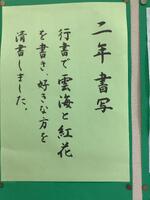 二年書写
行書で雲海と紅花
を書き、好きな方を
清書しました。